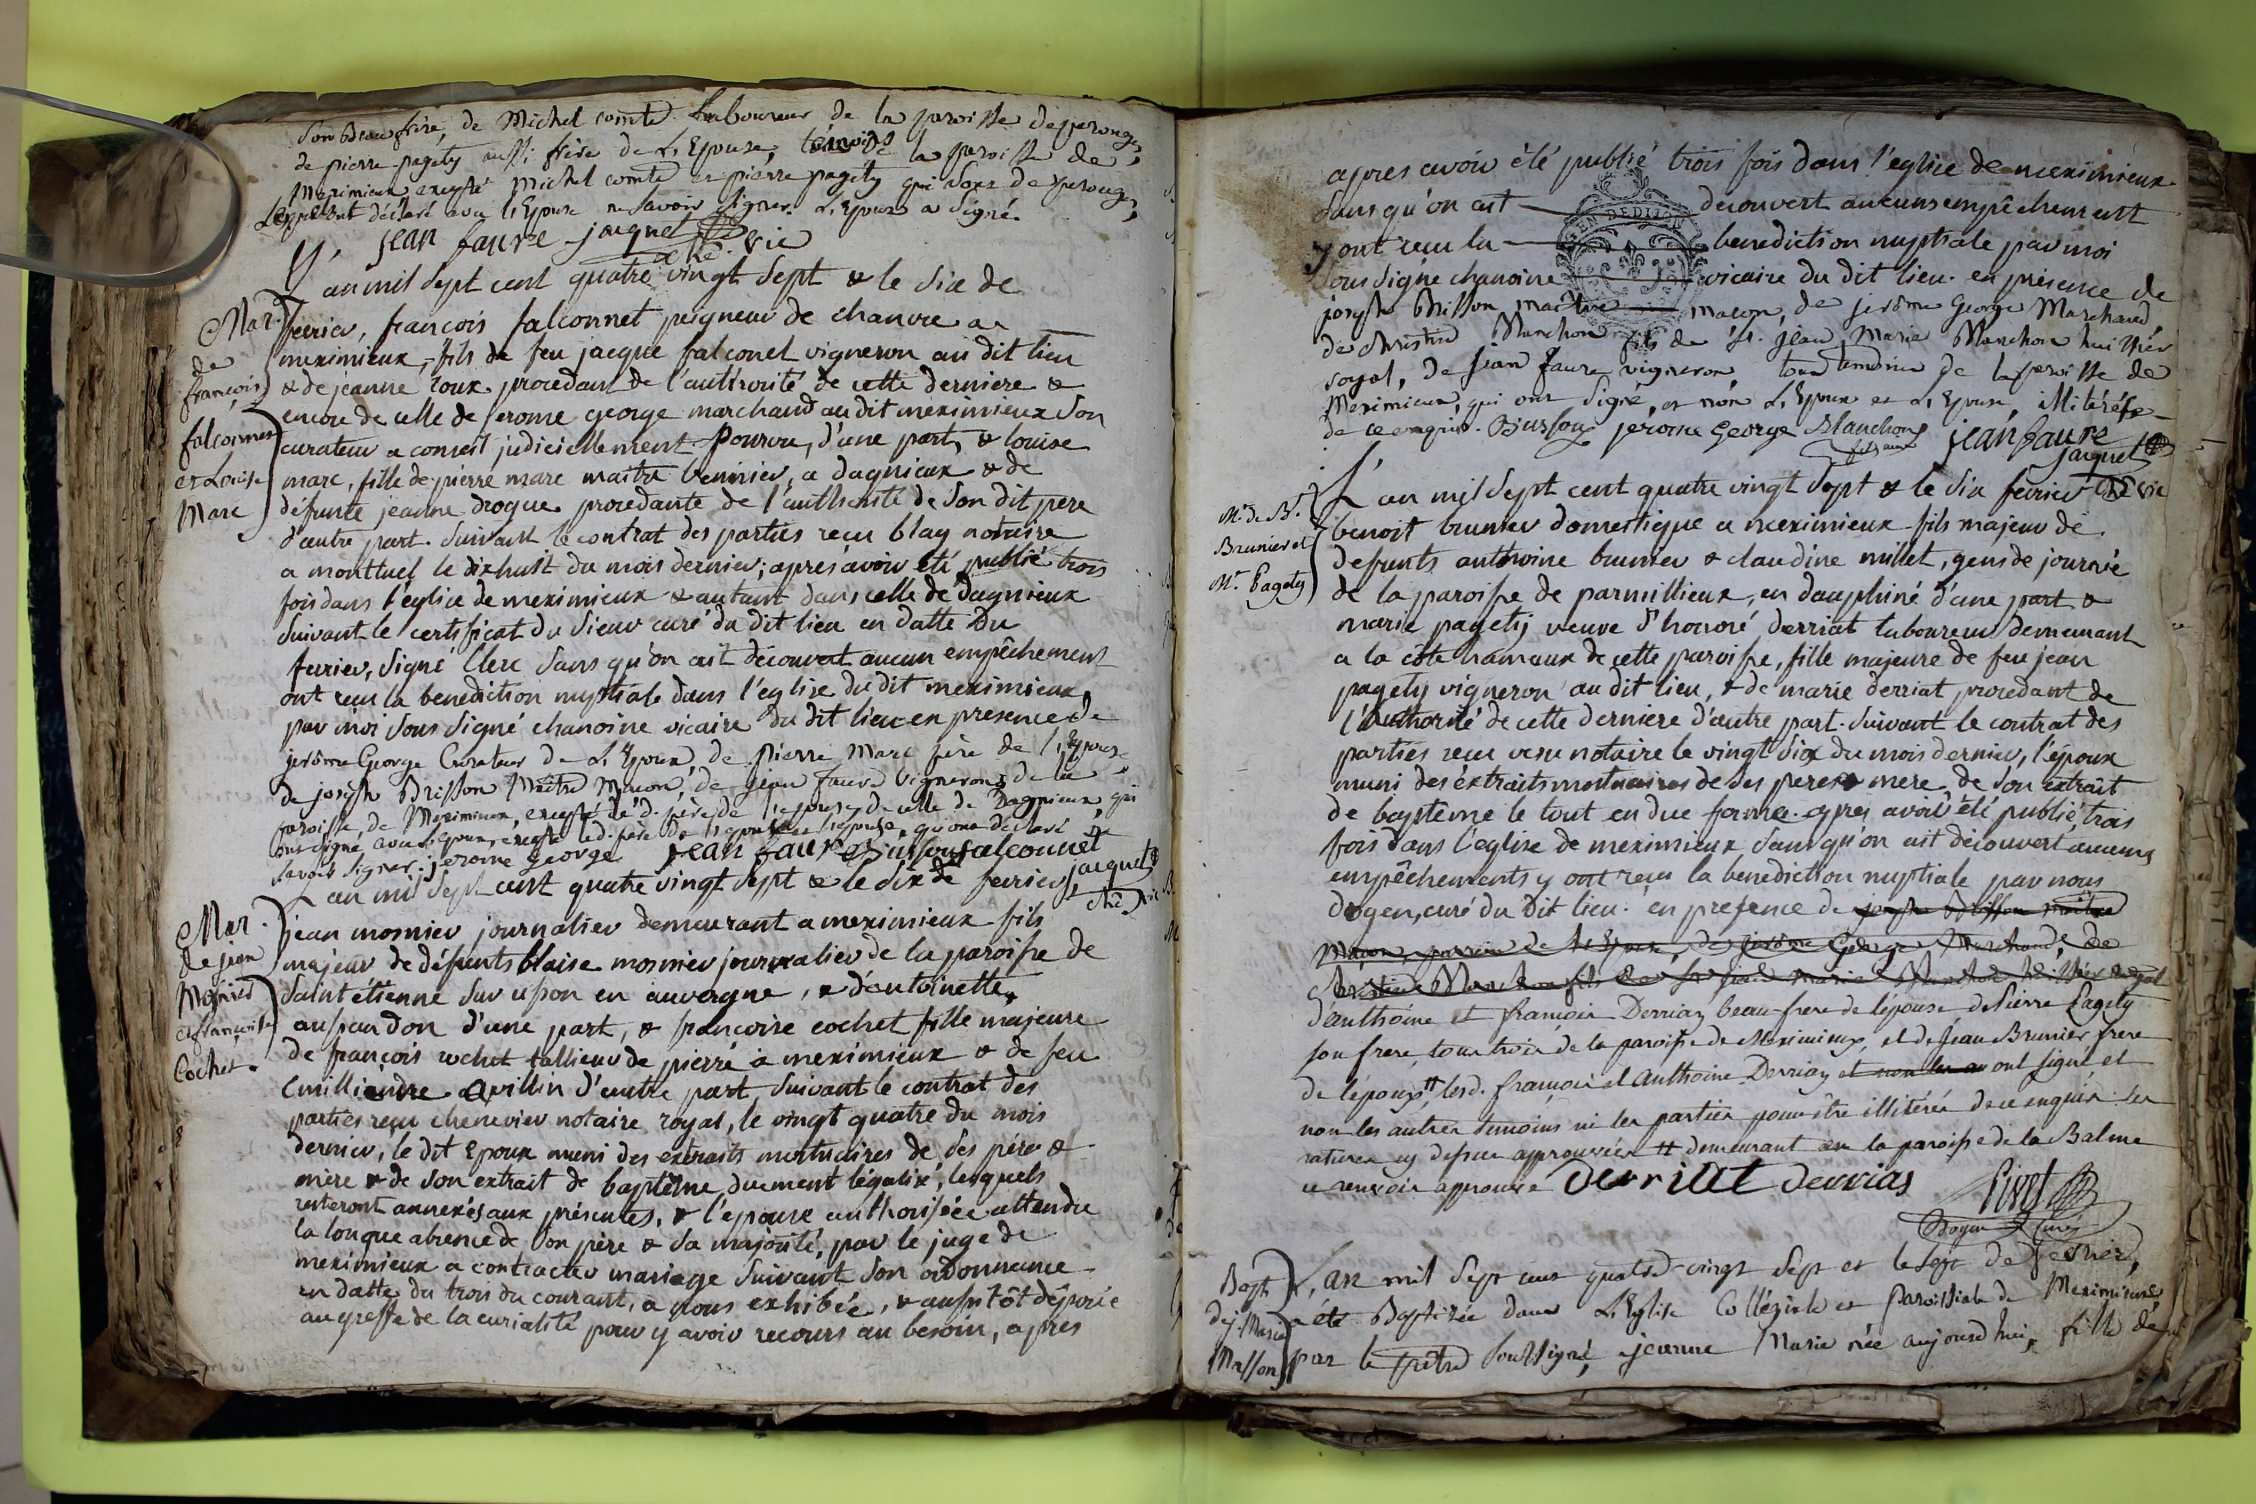 son beau frère, de Michel comte Laboureur de la paroisse de perouges,
de pierre pagety aussi frère de L'Epouse, la paroisse de
Meximieux excepté Michel comte et pierre pagety qui sont de perouges,
déclaré avec l'Epouse ne savoir signer. L'Epoux a signé.
jean faure jaquet
che vic
L'an mil sept cent quatre vingt sept & le six de
fevrier, françois falconnet peigneur de chanvre a
meximieux, fils de feu jacque falconet vigneron au dit lieu
& de jeanne roux procedant de l'authorité de cette derniere &
encore de celle de jerome george marchand au dit meximieux son
curateur a conseil judiciellement pourvu, d'une part, & louise
marc, fille de pierre marc maitre a dagnieux & de
défunte jeanne drogue procedante de l'authorité de son dit pere
d'autre part. suivant le contrat des parties reçu blay notaire
a montluel le dixhuit du mois dernier; après avoir été publié trois
fois dans l'eglise de meximieux & autant dans celle de dagnieux
suivant le certificat du sieur curé du dit lieu en datte du
fevrier, signé Clerc sans qu'on ait découvert aucun empêchement
ont reçu la benediction nuptiale dans l'eglise du dit meximieux,
par moi sous signé chanoine vicaire du dit lieu en presence de
jerôme George Curateur de L'Epoux, de pierre Marc père de l'Epouse
de joseph Brisson Maître Maçon, de jean faure vigneron de la
paroisse de Meximieux, excepté le d. père de l'epouse de celle de Dagnieux, qui
ont signé avec L'Epoux, excepté le d. père de l'epouse & l'epouse, qui ont déclaré
savoir signer. jerome George jean faure Bursson falconnet
jacquet
che vic
L'an mil sept cent quatre vingt sept & le six de fevrier,
jean mosnier journalier demeurant a meximieux fils
majeur de défunts blaise mosnier journalier de la paroisse de
saint étienne sur uson en auvergne, & d'antoinette
auspandon d'une part, & francoise cochet fille majeure
de françois cochet tallieur de pierre a meximieux & de feu
Emilliendre quillin d'autre part, suivant le contrat des
parties reçu chenevier notaire royal, le vingt quatre du mois
dernier, le dit Epoux muni des extraits mortuaires de ses père &
mère & de son extrait de baptême duement légalisé, lesquels
resteront annexés aux présentes, & l'epouse authorisée attendu
la longue absence de son père & sa majorité, par le juge de
meximieux a contracter mariage suivant son ordonnance
en datte du trois du courant, a nous exhibée, & aussitôt déposée
au greffe de la curialité pour y avoir recours au besoin, après
Mar.
de
françois
falconnet
et Louise
Marc
Mar.
de jean
Mosnier
et françoise
Cochet.
apres avoir été publié trois fois dans l'eglise de meximieux
sans qu'on ait decouvert aucuns empêchement
y ont reçu la benediction nuptiale par moi
sous signé chanoine vicaire du dit lieu en présence de
joseph Brisson maitre maçon, de jerôme George Marchand,
de Christin Blanchon fils de Sr. jean Marie Blanchon huissier
royal, de jean faure vigneron tous témoins de la paroisse de
Meximieux, qui ont signé, et non L'Epoux et L'Epouse, illitérés
de ce enquis. Bursson jerome George Blanchon jean faure
fils ainé
jaquet
che vic
L'an mil sept cent quatre vingt sept & le six fevrier
benoit brunier domestique a meximieux fils majeur de
defunts anthoine brunier & claudine millet, gens de journée
de la paroisse de parmillieux, en dauphiné d'une part &
marie pagety veuve d'honoré derriat laboureur demeurant
a la côte hamaux de cette paroisse, fille majeure de feu jean
pagety vigneron au dit lieu, & de marie derriat procedant de
l'authorité de cette derniere d'autre part. suivant le contrat des
parties reçu notaire le vingt six du mois dernier, l'époux
muni des extraits mortuaires de ses peres & mere & de son extrait
de baptême le tout en due forme. apres avoir été publié trois
fois dans l'église de meximieux sans qu'on ait découvert aucuns
empêchements y ont reçu la benediction nuptiale par nous
doyen, curé du dit lieu. en presence de joseph Brisson maitre
Maçon, de l'Epoux, de jerôme George Marchand, de
Christin Blanchon fils de Sr jean Marie Blanchon huissier royal
d'anthoine et françois Derriaz beau-frere de l'épouse de Pierre Pagety
son frere, tous trois de la paroisse de Meximieux, et de Jean Brunier frere
de l'époux # lesd. françois et Anthoine Derriaz ont signé, et
non les autres temoins ni les parties pour être illitérés de ce enquis les
ratures cy dessus approuvées # demeurant en la paroisse de la Balme
ce renvoi approuvé Derriat derrias
Livet
Doyen Curé
L'an mil sept cent quatre-vingt sept et le sept de fevrier,
a été Baptisée dans L'Eglise Collégiale et Paroissiale de Meximieux,
par le prêtre soussigné, jeanne Marie née aujourd'hui, fille de
Mr. de Bt.
Brunier et
Me. Pagety
Bapt
de j. Marie
Masson